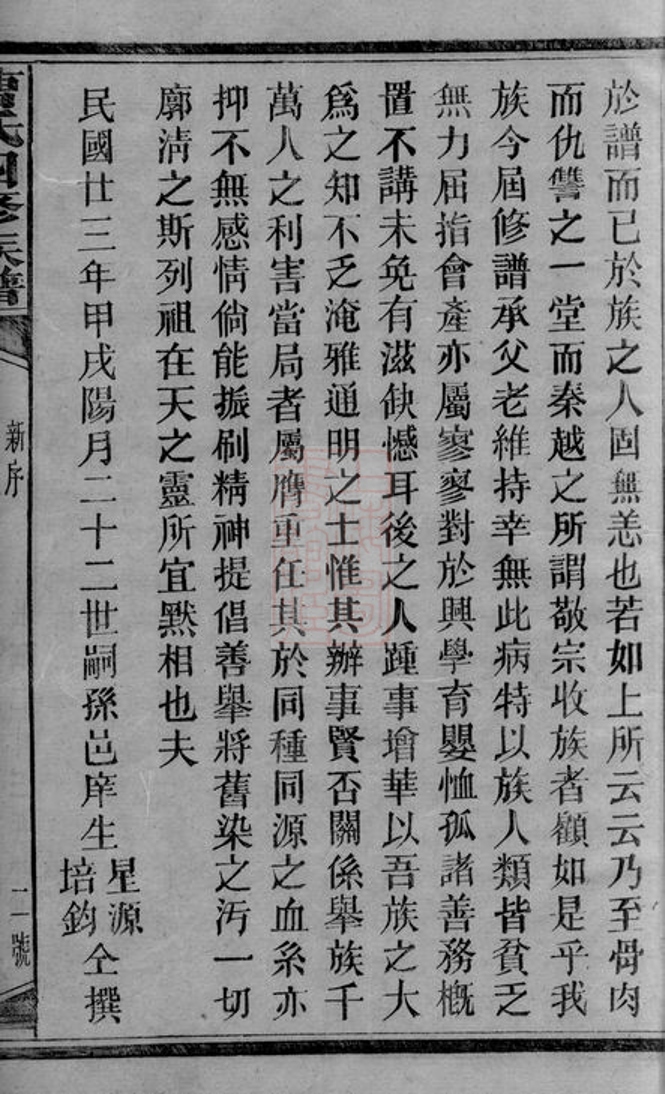 於譜而已於族之人固無恙也若如上所云云乃至骨肉
而仇讐之一堂而秦越之所謂敬宗收族者顧如是乎我
族今屆修譜承父老維持幸無此病特以族人類皆貧乏
無力屆指會產亦屬寥寥對於興學育嬰恤孤諸善務槪
置不講未免有滋缺憾耳後之人踵事增華以吾族之大
爲之知不乏淹雅通明之士惟其辦事賢否關係舉族千
萬人之利害當局者屬膺重任其於同種同源之血系亦
抑不無感情倘能振刷精神提倡善舉將舊染之污一切
廓淸之斯列祖在天之靈所宜默相也夫
民國廿三年甲戌陽月二十二世嗣孫邑庠生
星源
培鈞
仝撰
氏四修族譜
新序
二號